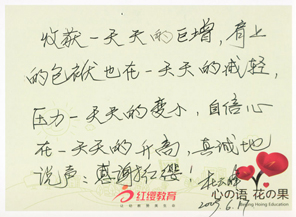 收获一天天的巨增，肩上
的包袱也在一天天的减轻，
压力一天天的变小，自信心
在一天天的升高，真诚地
说声：感谢红缨！
红缨教育
心の语 花の果
Beijing Hoing Education